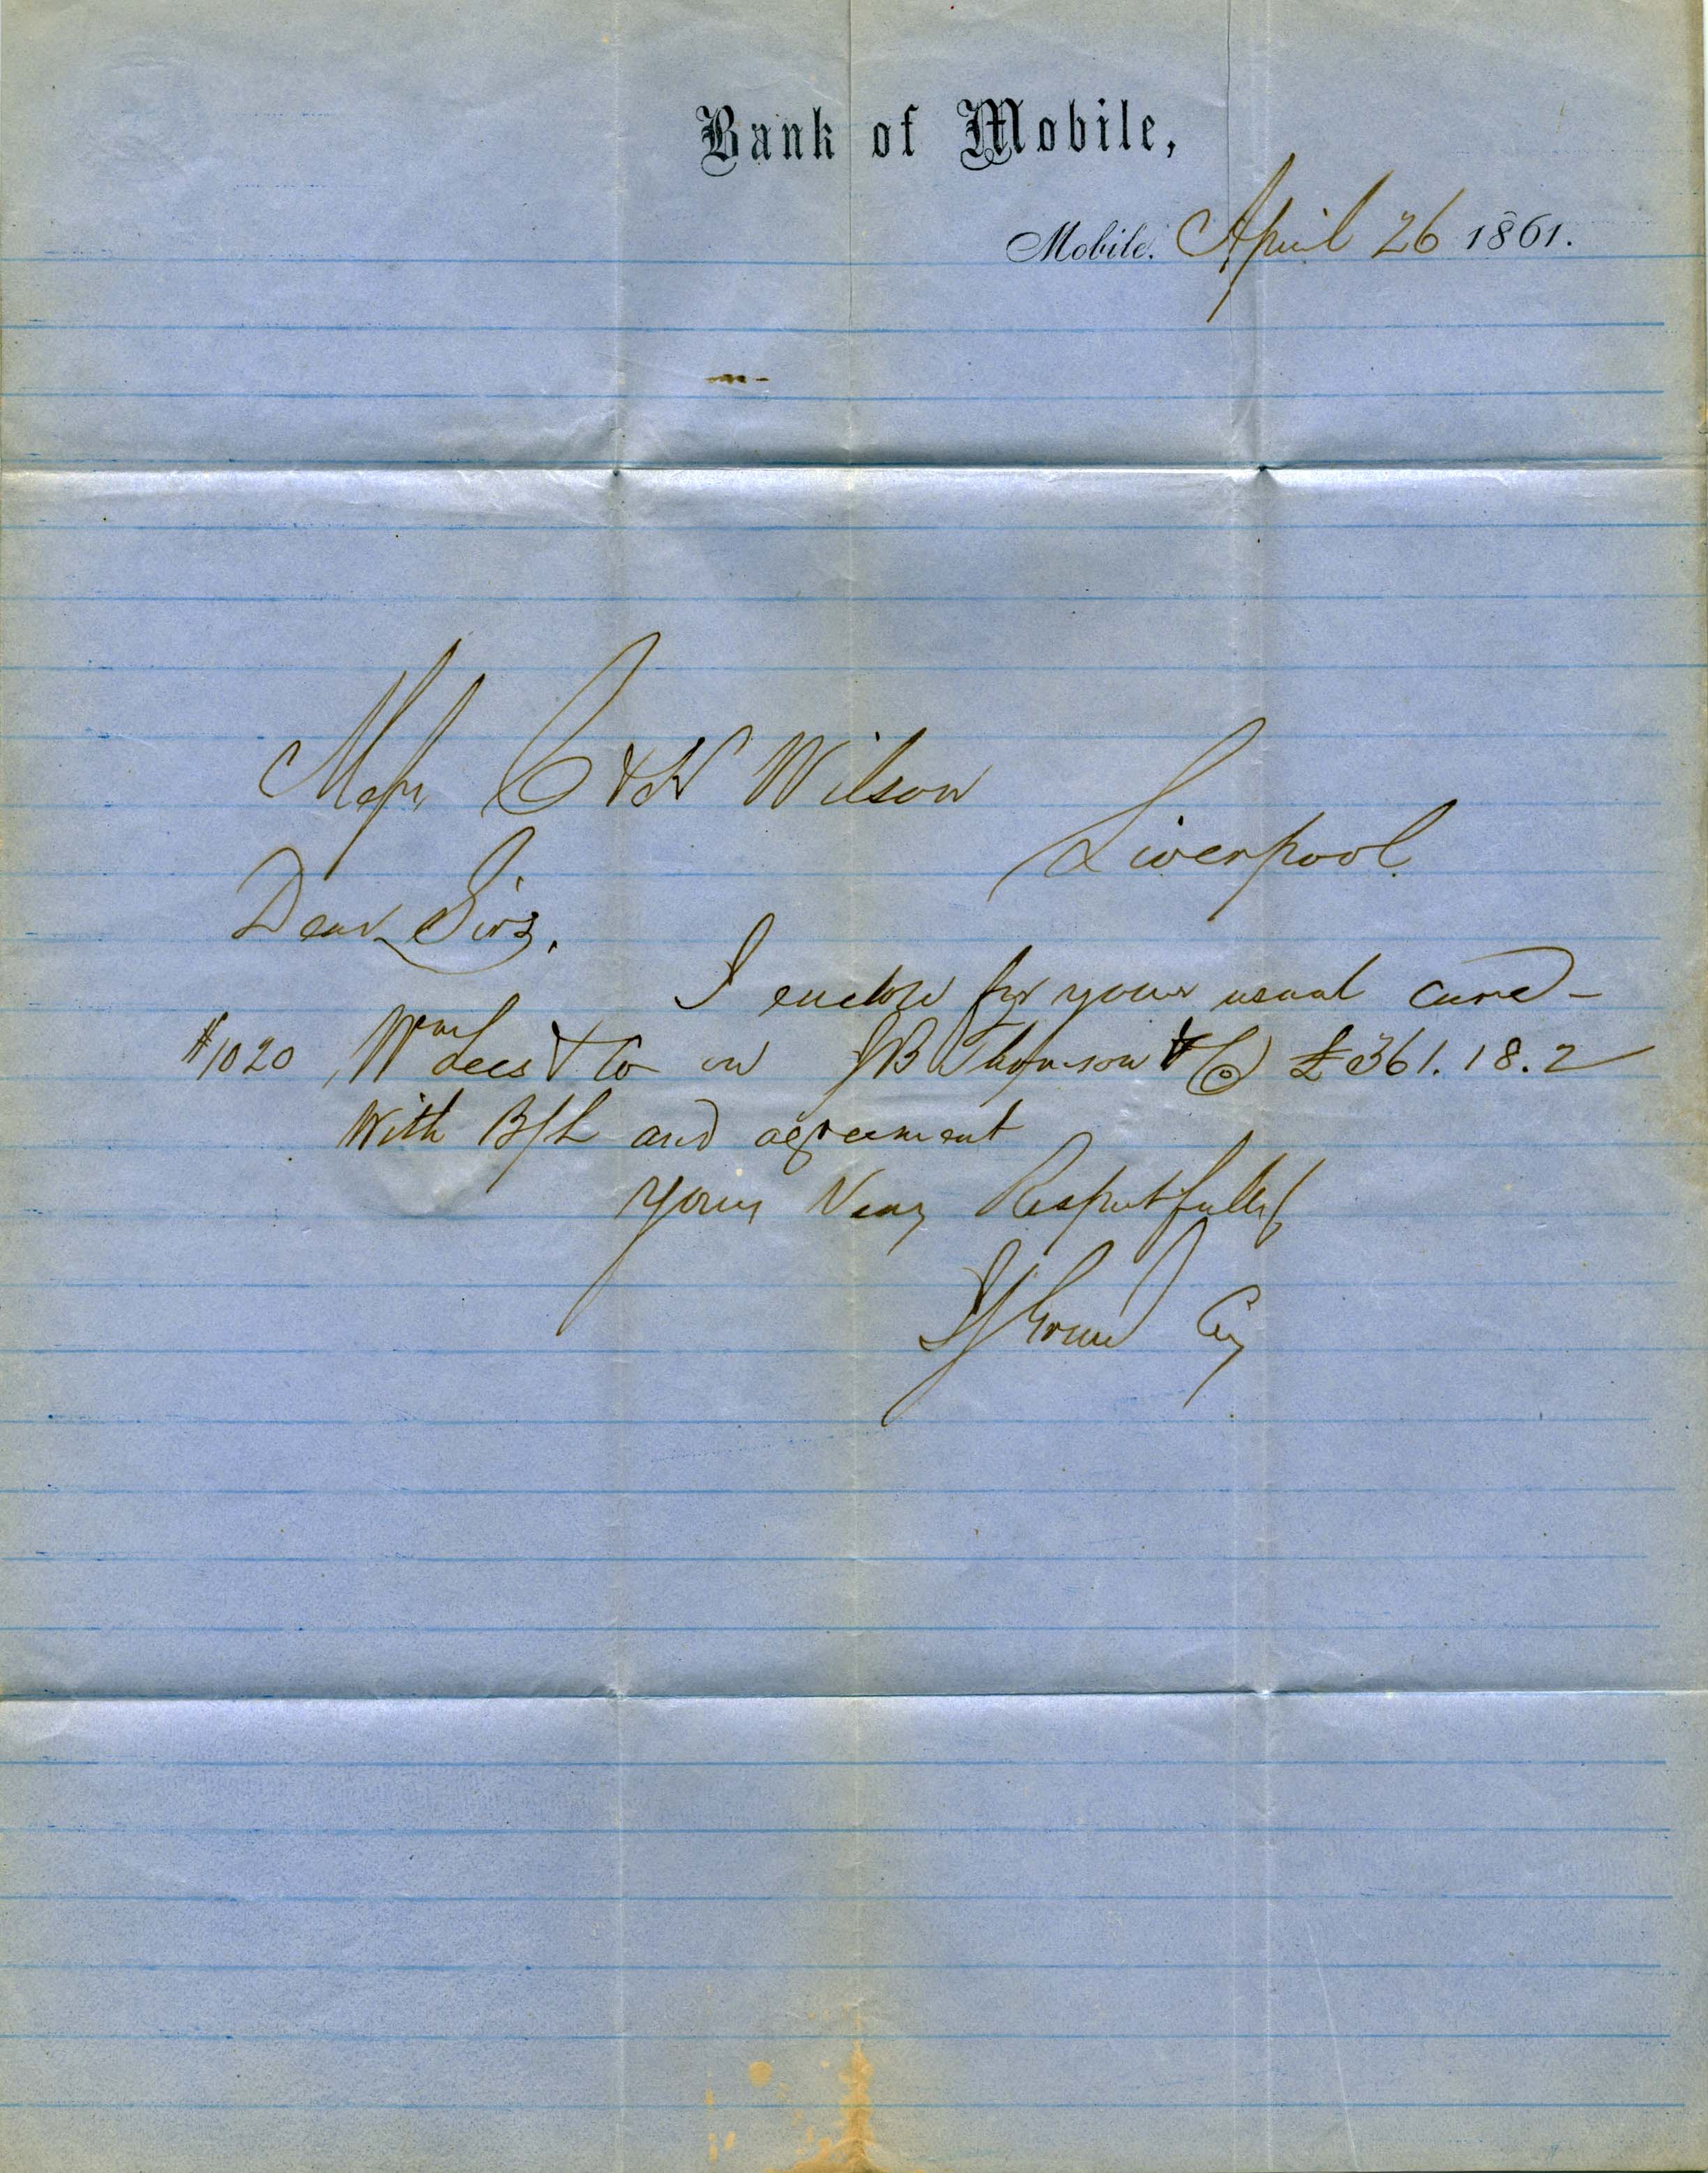 Bank of Mobile,
Mobile. April 26 1861.
Messrs C & H Wilson
Liverpool
Dear Sirs.
I enclose for your usual care -
#1020 Wm Lees & Co on JB Thomson & Co £361.18.2
With B/L and agreement
Yours Very Respectfully